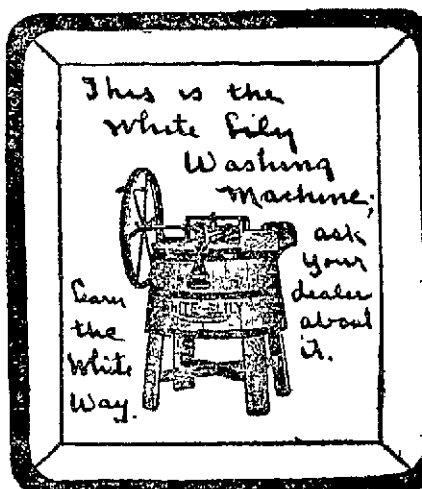 This is the
White Lily
Washing
Machine;
ask
your
dealer
about
it.
Learn
the
White
Way.
WHITE LILY